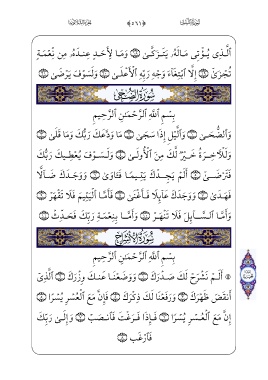 ٱلَّذِى يُؤْتِى مَالَهُۥ يَتَزَكَّىٰ وَمَا لِأَحَدٍ عِندَهُۥ مِن نِّعْمَةٍ
تُجْزَىٰٓ إِلَّا ٱبْتِغَآءَ وَجْهِ رَبِّهِ ٱلْأَعْلَىٰ وَلَسَوْفَ يَرْضَىٰ
سُورَةُ الضُّحَى
بِسْمِ ٱللَّهِ ٱلرَّحْمَٰنِ ٱلرَّحِيمِ
وَٱلضُّحَىٰ وَٱلَّيْلِ إِذَا سَجَىٰ مَا وَدَّعَكَ رَبُّكَ وَمَا قَلَىٰ
وَلَلْءَاخِرَةُ خَيْرٌ لَّكَ مِنَ ٱلْأُولَىٰ وَلَسَوْفَ يُعْطِيكَ رَبُّكَ
فَتَرْضَىٰٓ أَلَمْ يَجِدْكَ يَتِيمًا فَـَٔاوَىٰ وَوَجَدَكَ ضَآلًّا
فَهَدَىٰ وَوَجَدَكَ عَآئِلًا فَأَغْنَىٰ فَأَمَّا ٱلْيَتِيمَ فَلَا تَقْهَرْ
وَأَمَّا ٱلسَّآئِلَ فَلَا تَنْهَرْ وَأَمَّا بِنِعْمَةِ رَبِّكَ فَحَدِّثْ
سُورَةُ الانْشِرَاحِ
بِسْمِ ٱللَّهِ ٱلرَّحْمَٰنِ ٱلرَّحِيمِ
أَلَمْ نَشْرَحْ لَكَ صَدْرَكَ وَوَضَعْنَا عَنكَ وِزْرَكَ ٱلَّذِىٓ
أَنقَضَ ظَهْرَكَ وَرَفَعْنَا لَكَ ذِكْرَكَ فَإِنَّ مَعَ ٱلْعُسْرِ يُسْرًا
إِنَّ مَعَ ٱلْعُسْرِ يُسْرًا فَإِذَا فَرَغْتَ فَٱنصَبْ وَإِلَىٰ رَبِّكَ
فَٱرْغَب